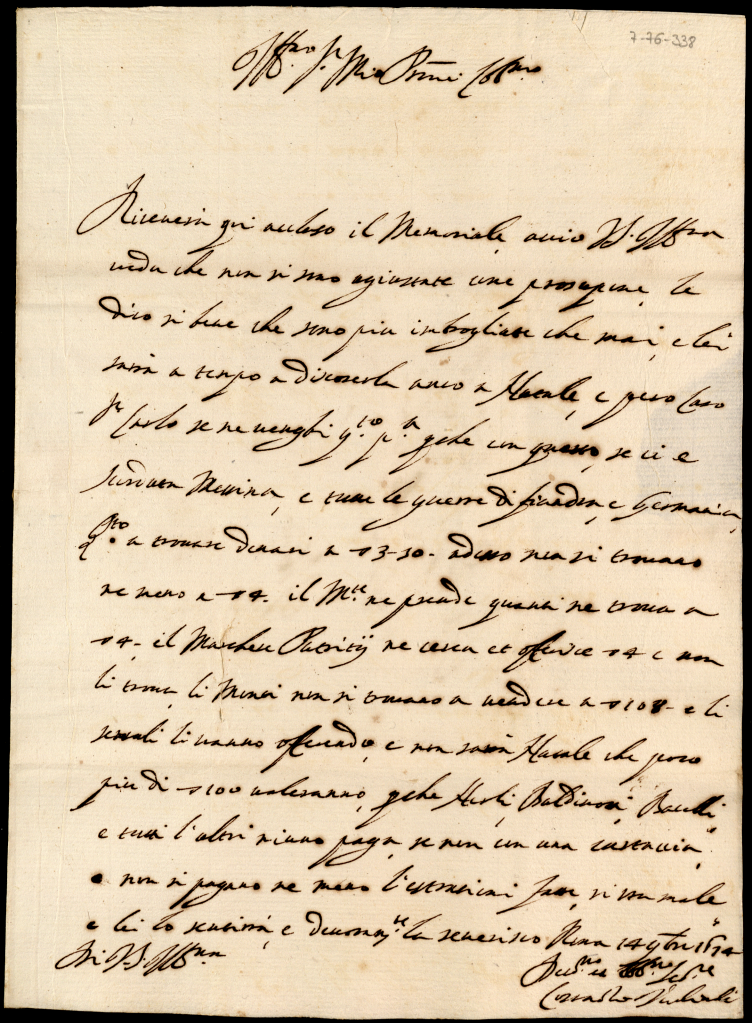 7-76-338
Ill.mo Sr Mio Prone Col.mo
Riceverà qui accluso il Memoriale, acciò V.S. Ill.ma
veda che non si sono agiustate come presupone, le
dico si bene che sono più imbrogliate che mai, e lei
sarà a tempo a discorerla anco a Natale, e pero caso
Sr Carlo se ne venghi q.to p.a perche con questo, se ci e
Messina, e tutte le guerre di fiandra, e Germania,
q.to a trovare denari a 3-50- adesso non si trovano
ne meno a 4- il M.te ne prende quanti ne trova a
4- il Marchese Patritij ne cerca et oferisce 4 e non
li trova, li Monti non si trovano a vendere a 108- e li
sensali li vanno oferendo, e non sarà Natale che poco
più di 100 valeranno, perche Nerli, Baldinoti,
e tutti l'altri niuno paga, se non con una
e non si pagano ne meno l'estrazioni fatte, si sta male
e lei lo sentirà, e devotam.te la reverisco Roma 14 9bre 1674
Di V.S. Ill.ma